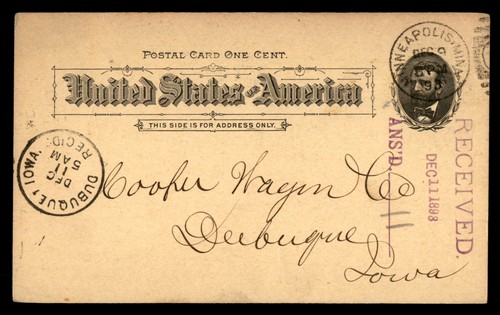 POSTAL CARD ONE CENT.
United States of America
THIS SIDE IS FOR ADDRESS ONLY.
MINNEAPOLIS, MINN.
DEC 9
RECEIVED.
DEC 11 1893
ANS'D.
DUBUQUE, IOWA.
DEC
11
5AM
REC'D.
Cooper Wagon Co
Dubuque
Iowa